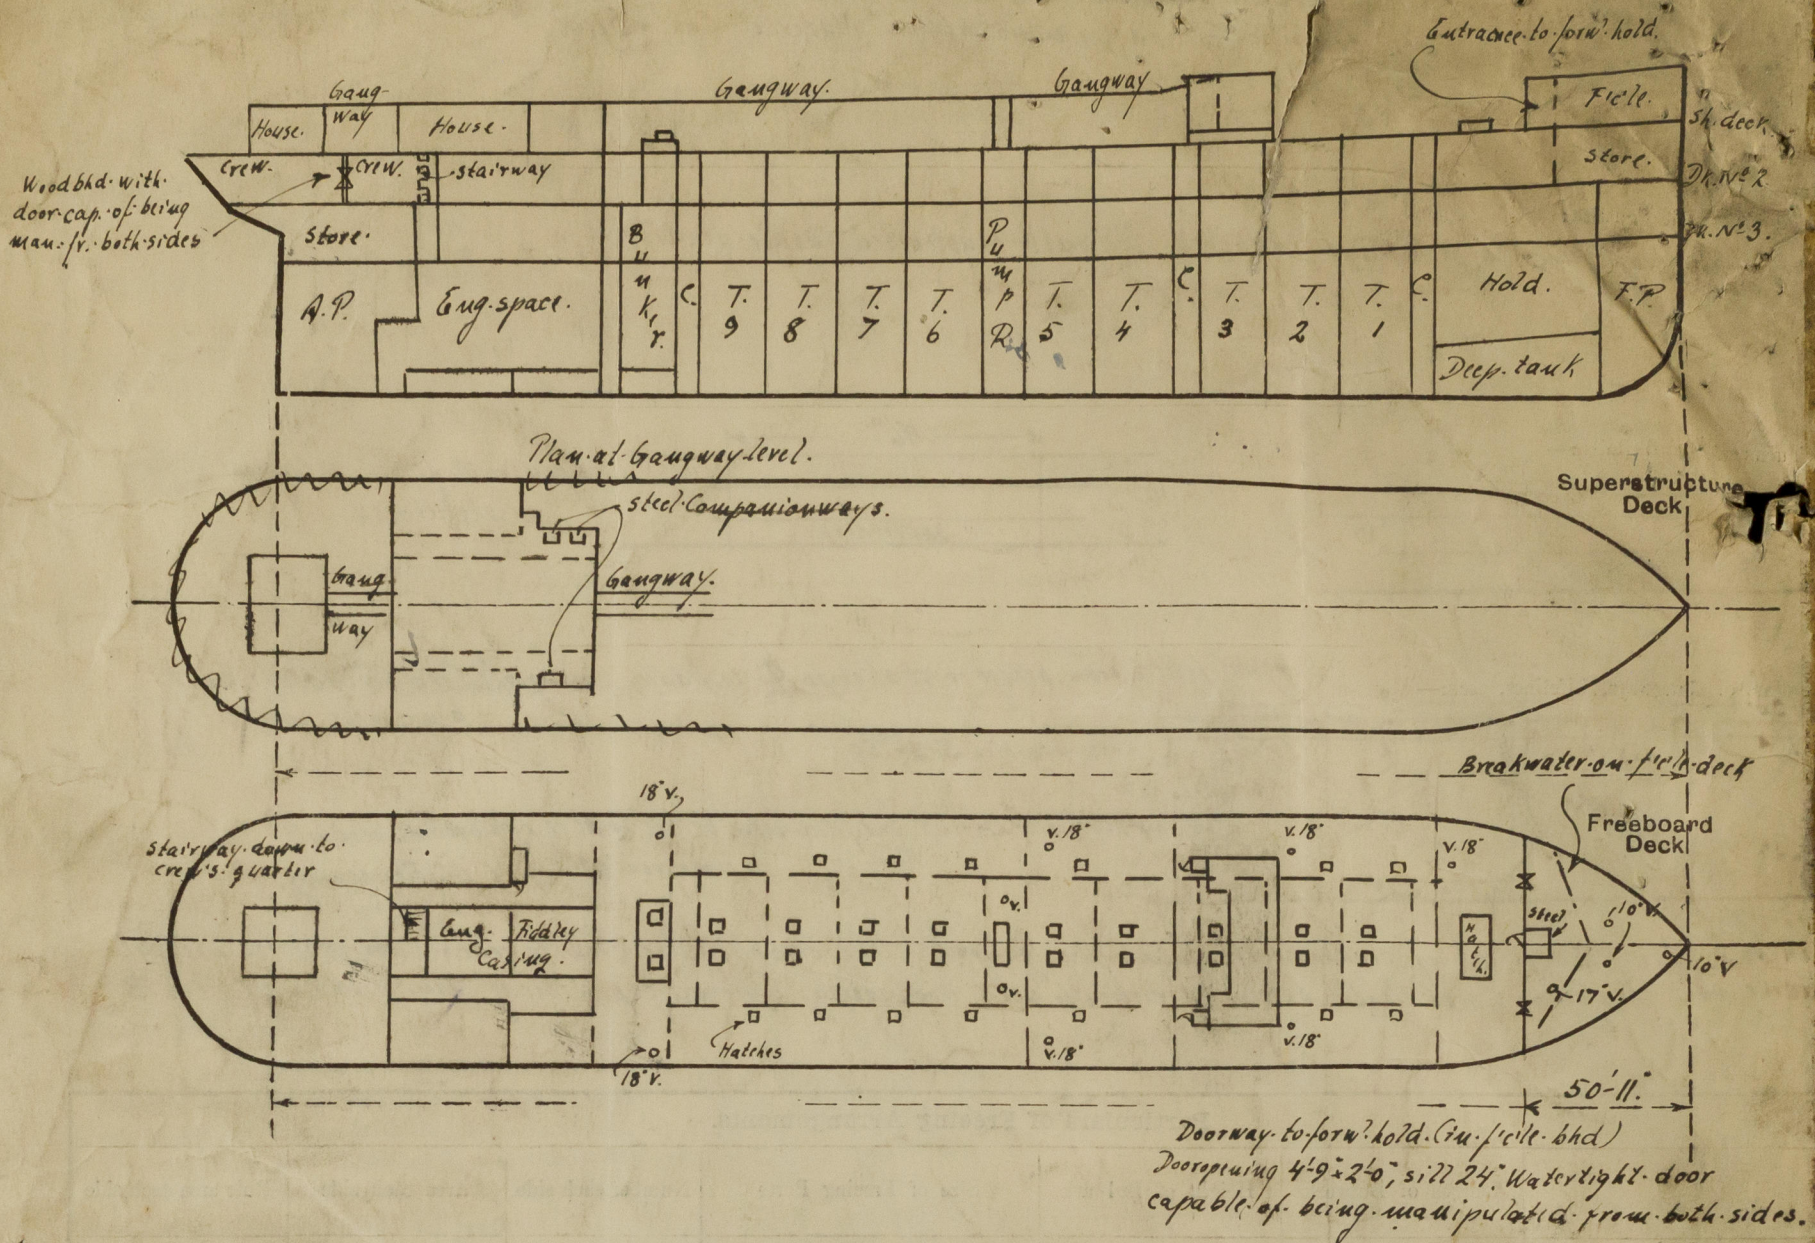 Entrance.to.forwd.hold.
Gang-
way
Gangway.
Gangway
House.
House.
F'cle.
Sh.deck
Crew.
Crew.
Stairway
Store.
Dk.No 2
Wood bhd. with.
door.cap.of.being
man.fr.both.sides
Store.
Dk.No 3.
A.P.
Eng.space.
Bunkr.
C.
T.
9
T.
8
T.
7
T.
6
Pump
R
T.
5
T.
4
C.
T.
3
T.
2
T.
1
C.
Hold.
F.P.
Deep.tank
Plan.at.Gangway.level.
Steel.Companionways.
Superstructure
Deck
Gang
way
Gangway.
Breakwater.on.f'cle.deck
18"v.
Freeboard
Deck
Stairway.down.to.
crew's.quarter
v.18"
v.18"
v.18"
Eng.
Casing.
Fiddley
v.
v.
Hatch.
Steel
10"v.
10"v
17"v.
Hatches
18"v.
v.18"
v.18"
50'-11".
Doorway.to.forwd.hold.(in.f'cle.bhd)
Dooropening 4'-9"x2'-0", sill 24". Watertight.door
capable.of.being.manipulated.from.both.sides.